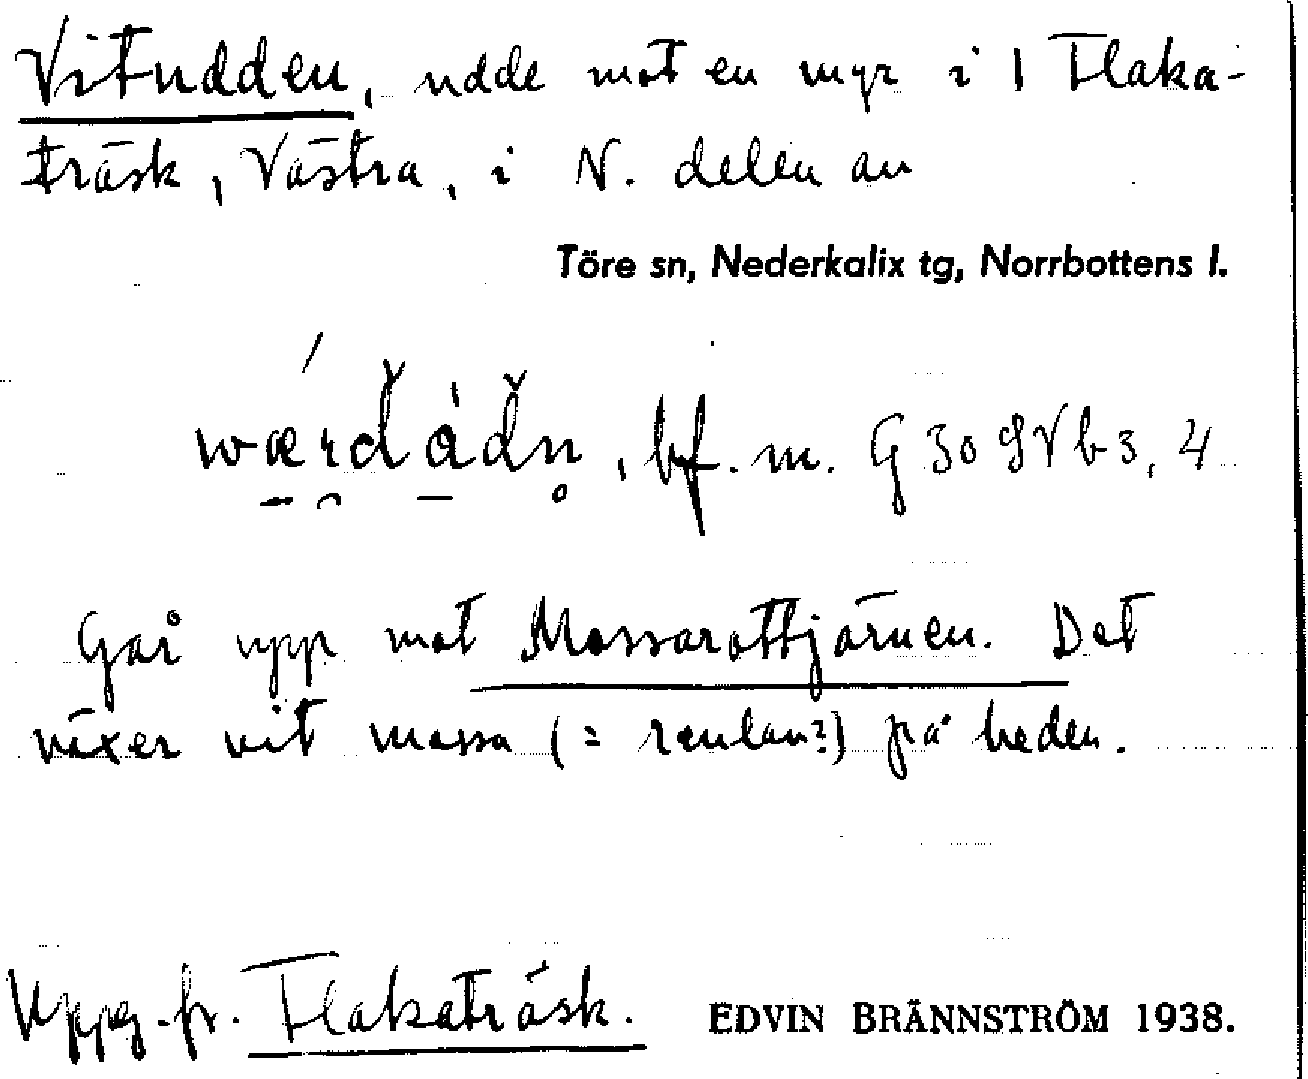 Vitudden, udde mot en myr i 1 Flaka-
träsk, Västra, i N. delen av
Töre sn, Nederkalix tg, Norrbottens l.
bf. m. G 30 SV b 3, 4
Går upp mot Mossarottjärnen. Det
växer vit mossa (= renlav?) på heden.
Uppg. fr. Flakaträsk. EDVIN BRÄNNSTRÖM 1938.